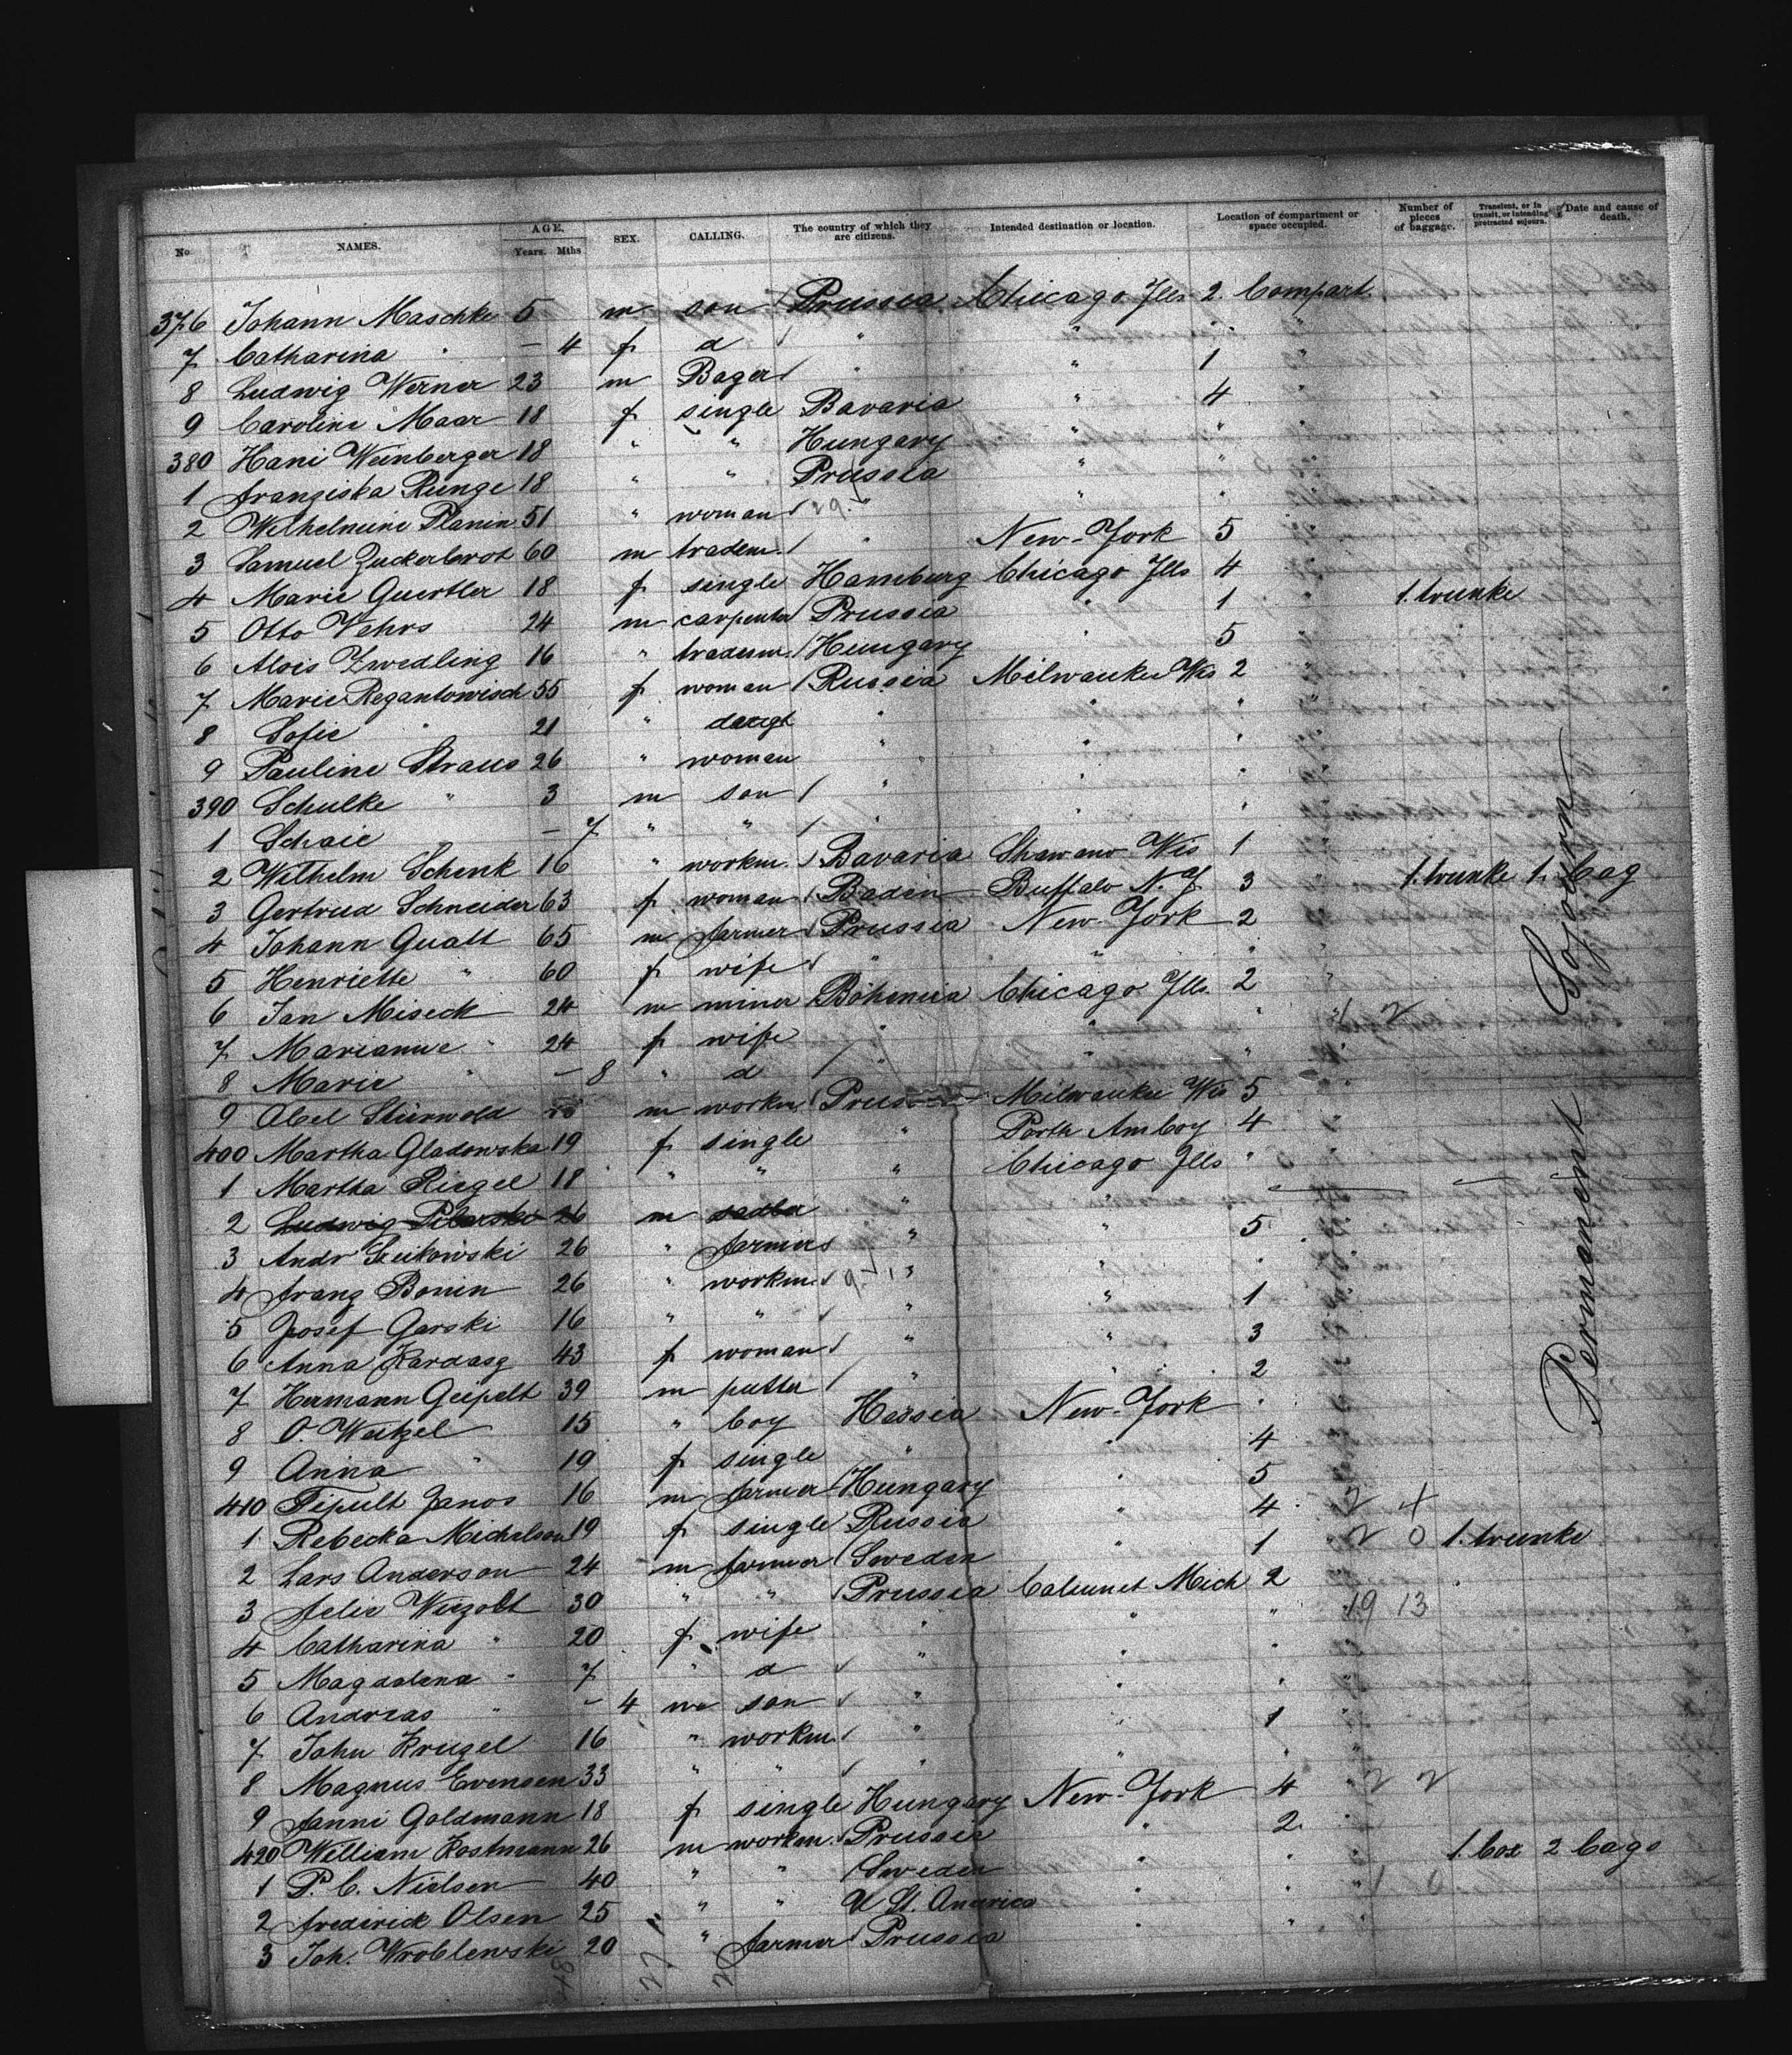 No NAMES. AGE. Years. Mths SEX. CALLING. The country of which they are citizens. Intended destination or location. Location of compartment or space occupied. Number of pieces of baggage. Transient, or in transit, or intending protracted sojourn. Date and cause of death.
376 Johann Maschke 5 m son Prussia Chicago Ills 2. Compart.
7 Catharina " – 4 f d " " " "
8 Ludwig Werner 23 m Bager " " 1 "
9 Caroline Maar 18 f single Bavaria " 4 "
380 Hani Weinberger 18 " " Hungary " " "
1 Franziska Runge 18 " " Prussia " " "
2 Wilhelmine Planin 51 " woman 29. " " " "
3 Samuel Zuckerbrot 60 m tradesm. " New-York 5 "
4 Marie Guertler 18 f single Hamburg Chicago Ills 4 "
5 Otto Vehrs 24 m carpenter Prussia " 1 " 1. trunke
6 Alois Zwedling 16 " tradesm. Hungary " 5 "
7 Marie Regantowisch 55 f woman Russia Milwaukee Wis 2 "
8 Sofie " 21 " daugt " " " "
9 Pauline Straus 26 " woman " " " "
390 Schulke " 3 m son " " " "
1 Schaie – 7 " " " " " "
2 Wilhelm Schenk 16 " workm. Bavaria Shawano Wis 1 "
3 Gertrud Schneider 63 f woman Baden Buffalo N.Y. 3 " 1. trunke 1. bag
4 Johann Quatt 65 m farmer Prussia New-York 2 "
5 Henriette " 60 f wife " " " "
6 Jan Miseck 24 m miner Bohemia Chicago Ills. 2 "
7 Marianne " 24 f wife " " " " 1 2
8 Marie " – 8 " d " " " "
9 Abel Stürwold m workm Prus Milwaukee Wis 5 "
400 Martha Gladowska 19 f single " Perth Amboy 4 "
1 Martha Riegel 18 " " " Chicago Ills " "
2 Ludwig Pilarski 26 m sadler " "
3 Andr 26 " farmer " " 5 "
4 Franz Bonin 26 " workm. 9 – 13 " " "
5 Josef Garski 16 " " " " 1 "
6 Anna Kardasz 43 f woman " " 3 "
7 Hermann Geipelt 39 m putter " " 2 "
8 O. Weitzel 15 " boy Hessia New-York " "
9 Anna " 19 f single " " 4 "
410 Tipult Janos 16 m farmer Hungary " 5 "
1 Rebecka Michelson 19 f single Russia " 4 " 2 4
2 Lars Anderson 24 m farmer Sweden " 1 " 2 0 1. trunke
3 Felix Wiezolt 30 " " Prussia Calumet Mich 2 "
4 Catharina " 20 f wife " " " " 19 13
5 Magdalena " 7 " d " " " "
6 Andreas " – 4 m son " " " "
7 John Krugel 16 " workm. " " 1 "
8 Magnus Evensen 33 " " " " " "
9 Fanni Goldmann 18 f single Hungary New-York 4 " 2 2
420 William Kostmann 26 m workm. Prussia " 2. "
1 P. C. Nielsen 40 " " Sweden " " " 1. box 2 bags
2 Frederick Olsen 25 " " U. St. America " " " 1 0
3 Joh. Wroblewski 20 " farmer Prussia " " "
Permanent Sojourn